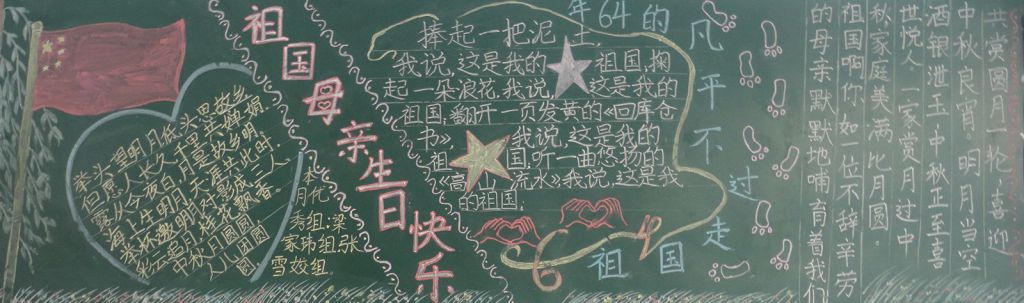 举头望明月低头思故乡
但愿人长久千里共婵娟
露从今夜白月是故乡明
海上生明月天涯共此时
举杯邀明月对影成三人
彩云追月桂花飘香
中秋日圆圆
人儿团圆
祖国母亲生日快乐
月化
秀组:梁
家玮组,张
雪姣组.
捧起一把泥土,
我说,这是我的祖国,掬
起一朵浪花,我说,这是我的
祖国,翻开一页发黄的《回库仓
书》我说,这是我的
祖国,听一曲悠扬的
《高山流水》,我说,这是我
的祖国.
年64的
凡平不过走
64
祖国
共赏圆月一轮,喜迎
中秋良宵。明月当空
酒银泄玉,中秋正至喜
世悦人一家赏月过中
秋家庭美满比月圆
祖国啊你如一位不辞辛劳
的母亲默默地哺育着我们